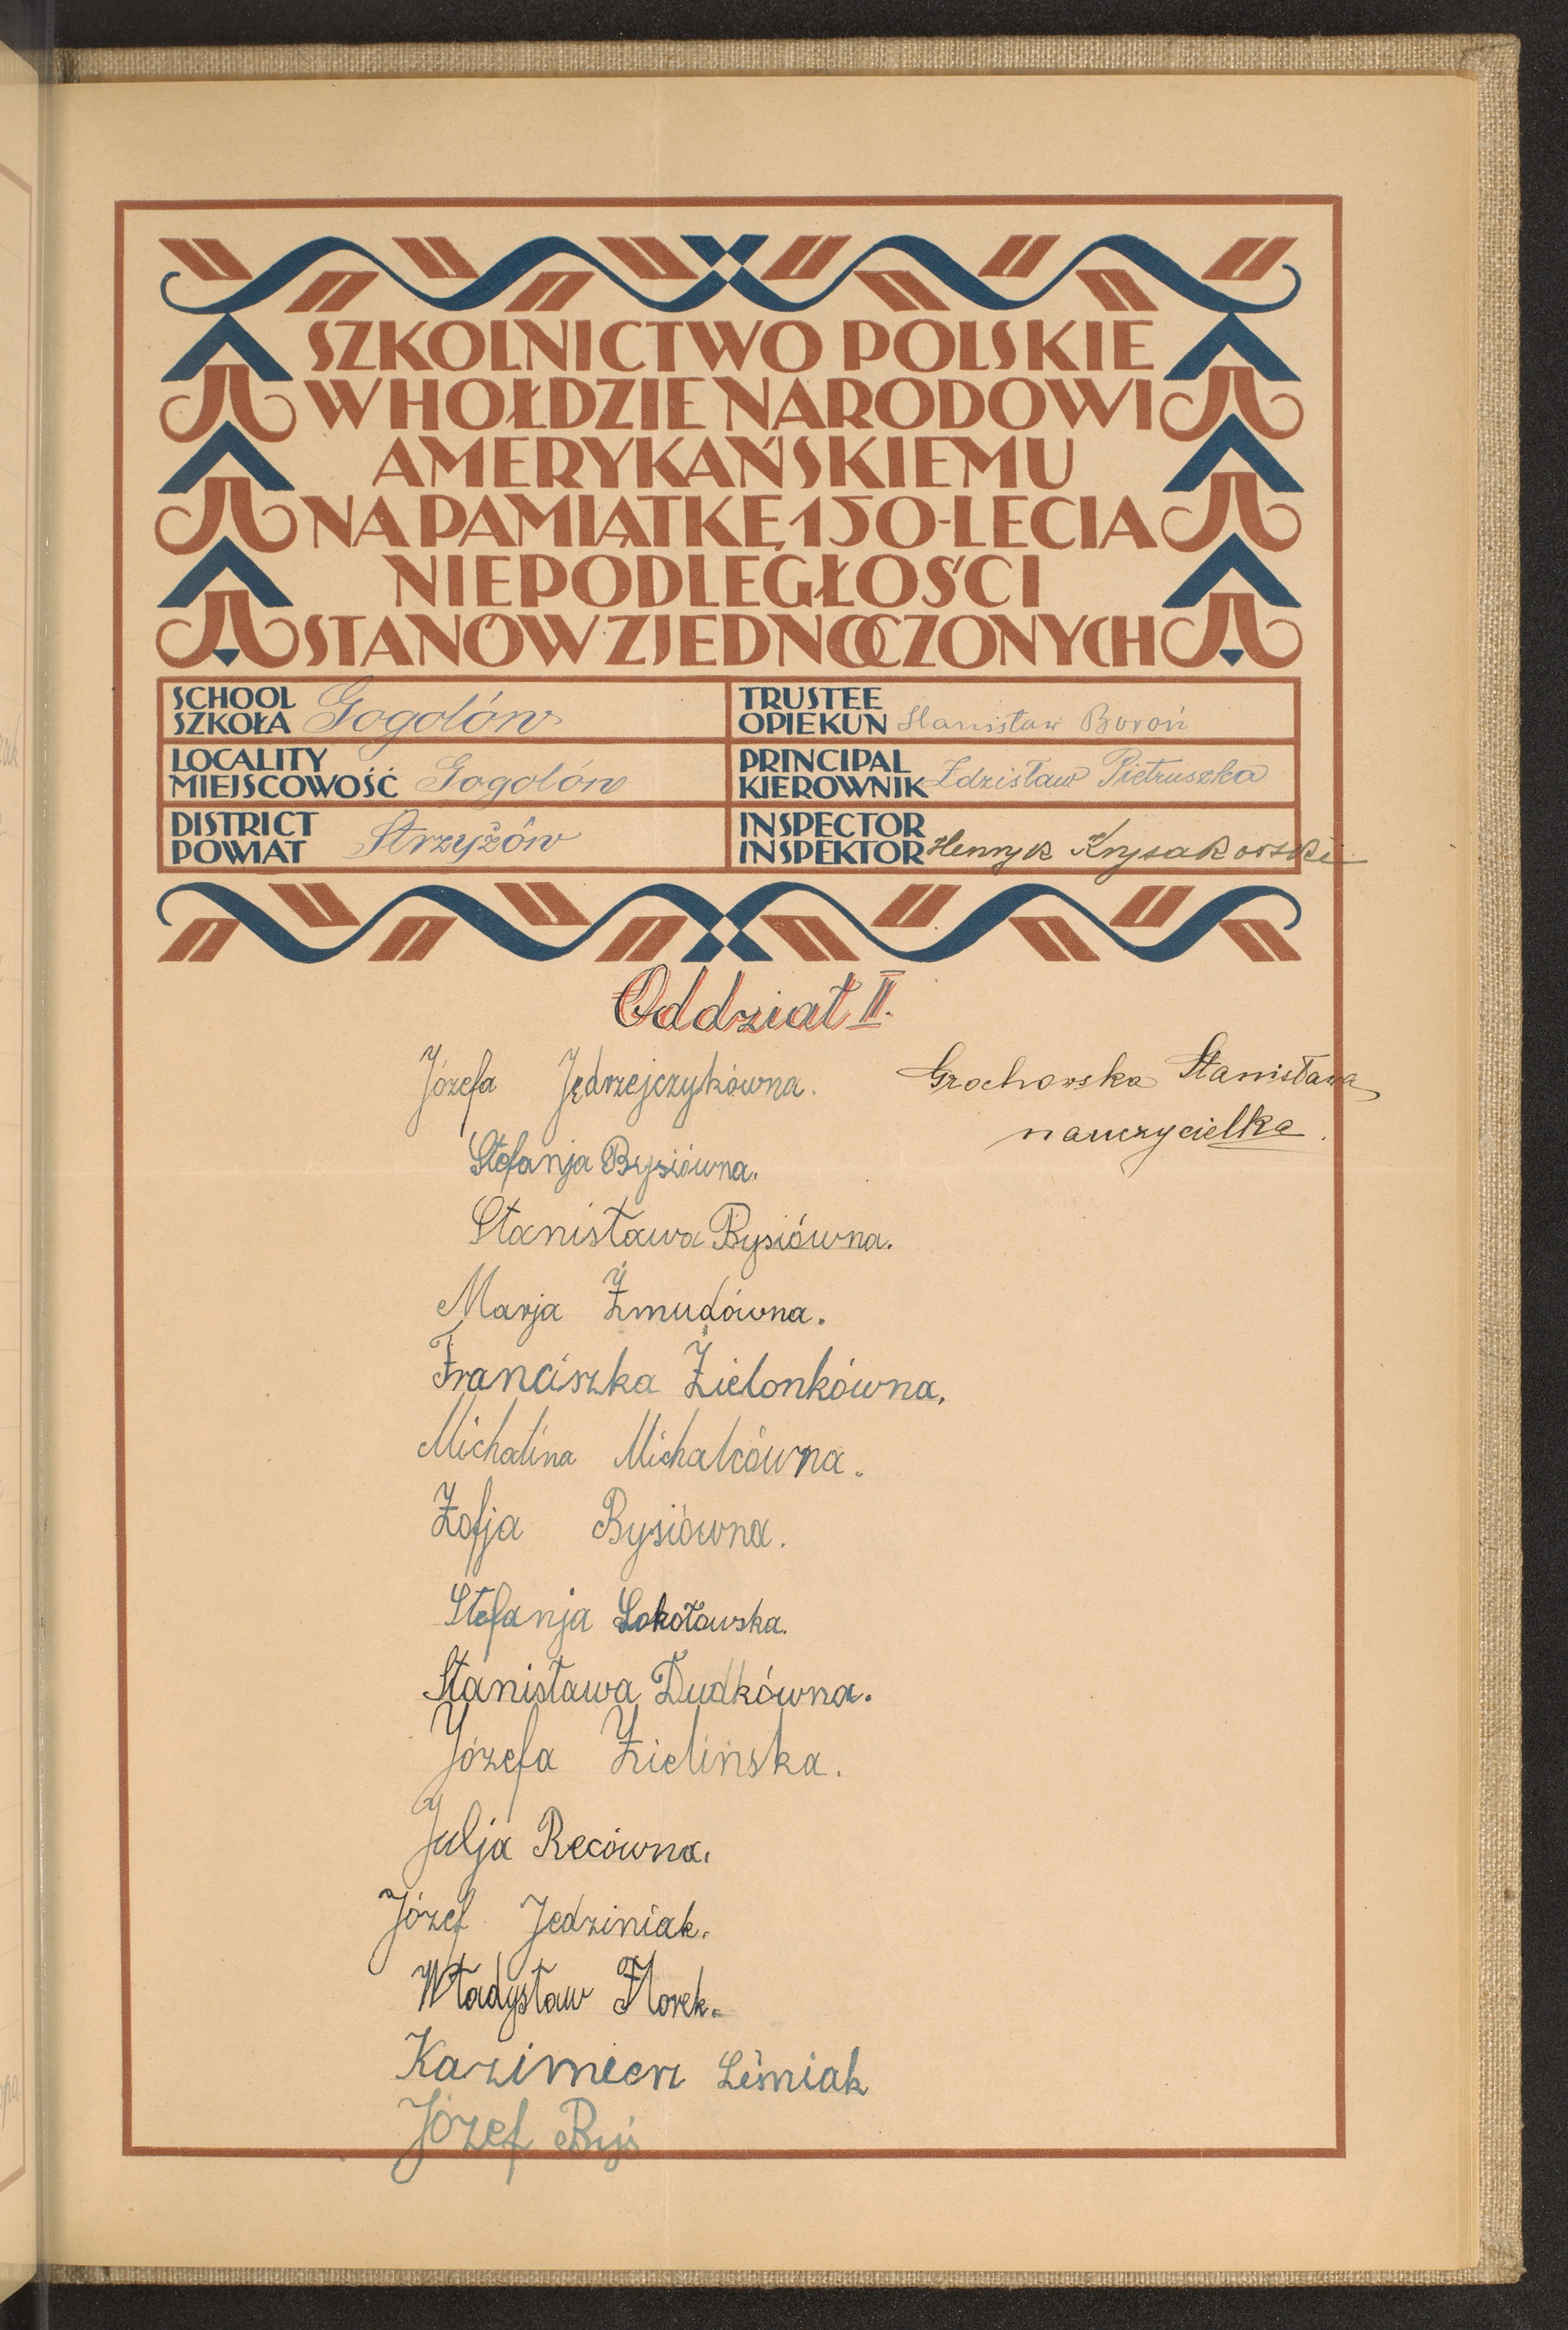 SZKOLNICTWO POLSKIE
W HOŁDZIE NARODOWI
AMERYKAŃSKIEMU
NA PAMIĄTKĘ 150-LECIA
NIEPODLEGŁOŚCI
STANÓW ZJEDNOCZONYCH
SCHOOL
SZKOŁA Gogolów
TRUSTEE
OPIEKUN Stanisław Boroń
LOCALITY
MIEJSCOWOŚĆ Gogolów
PRINCIPAL
KIEROWNIK Zdzisław Pietruszka
DISTRICT
POWIAT Strzyżów
INSPECTOR
INSPEKTOR Henryk Krysakowski
Oddział II.
Józefa Jędrzejczykówna.
Grochowska Stanisława
nauczycielka.
Stefanja Bysiówna.
Stanisława Bysiówna.
Marja Żmudówna.
Franciszka Zielonkówna.
Michalina Michalcówna.
Zofja Bysiówna.
Stefanja Sokołowska.
Stanisława Dudkówna.
Józefa Zielińska.
Julja Recówna.
Józef Jedziniak.
Władysław Florek.
Kazimierz Leśniak
Józef Byś